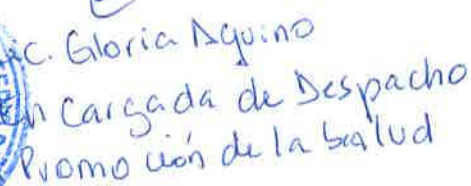 ic. Gloria Aquino
En Cargada de Despacho
Promoción de la Salud